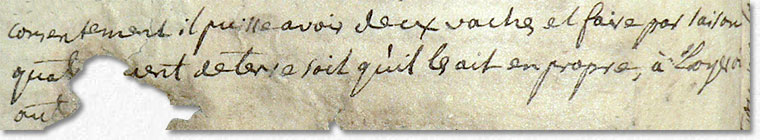 consentement il puisse avoir deux vaches et faire par saison
quat ent de terre soit qu'il les ait en propre, à loyer ou
aut